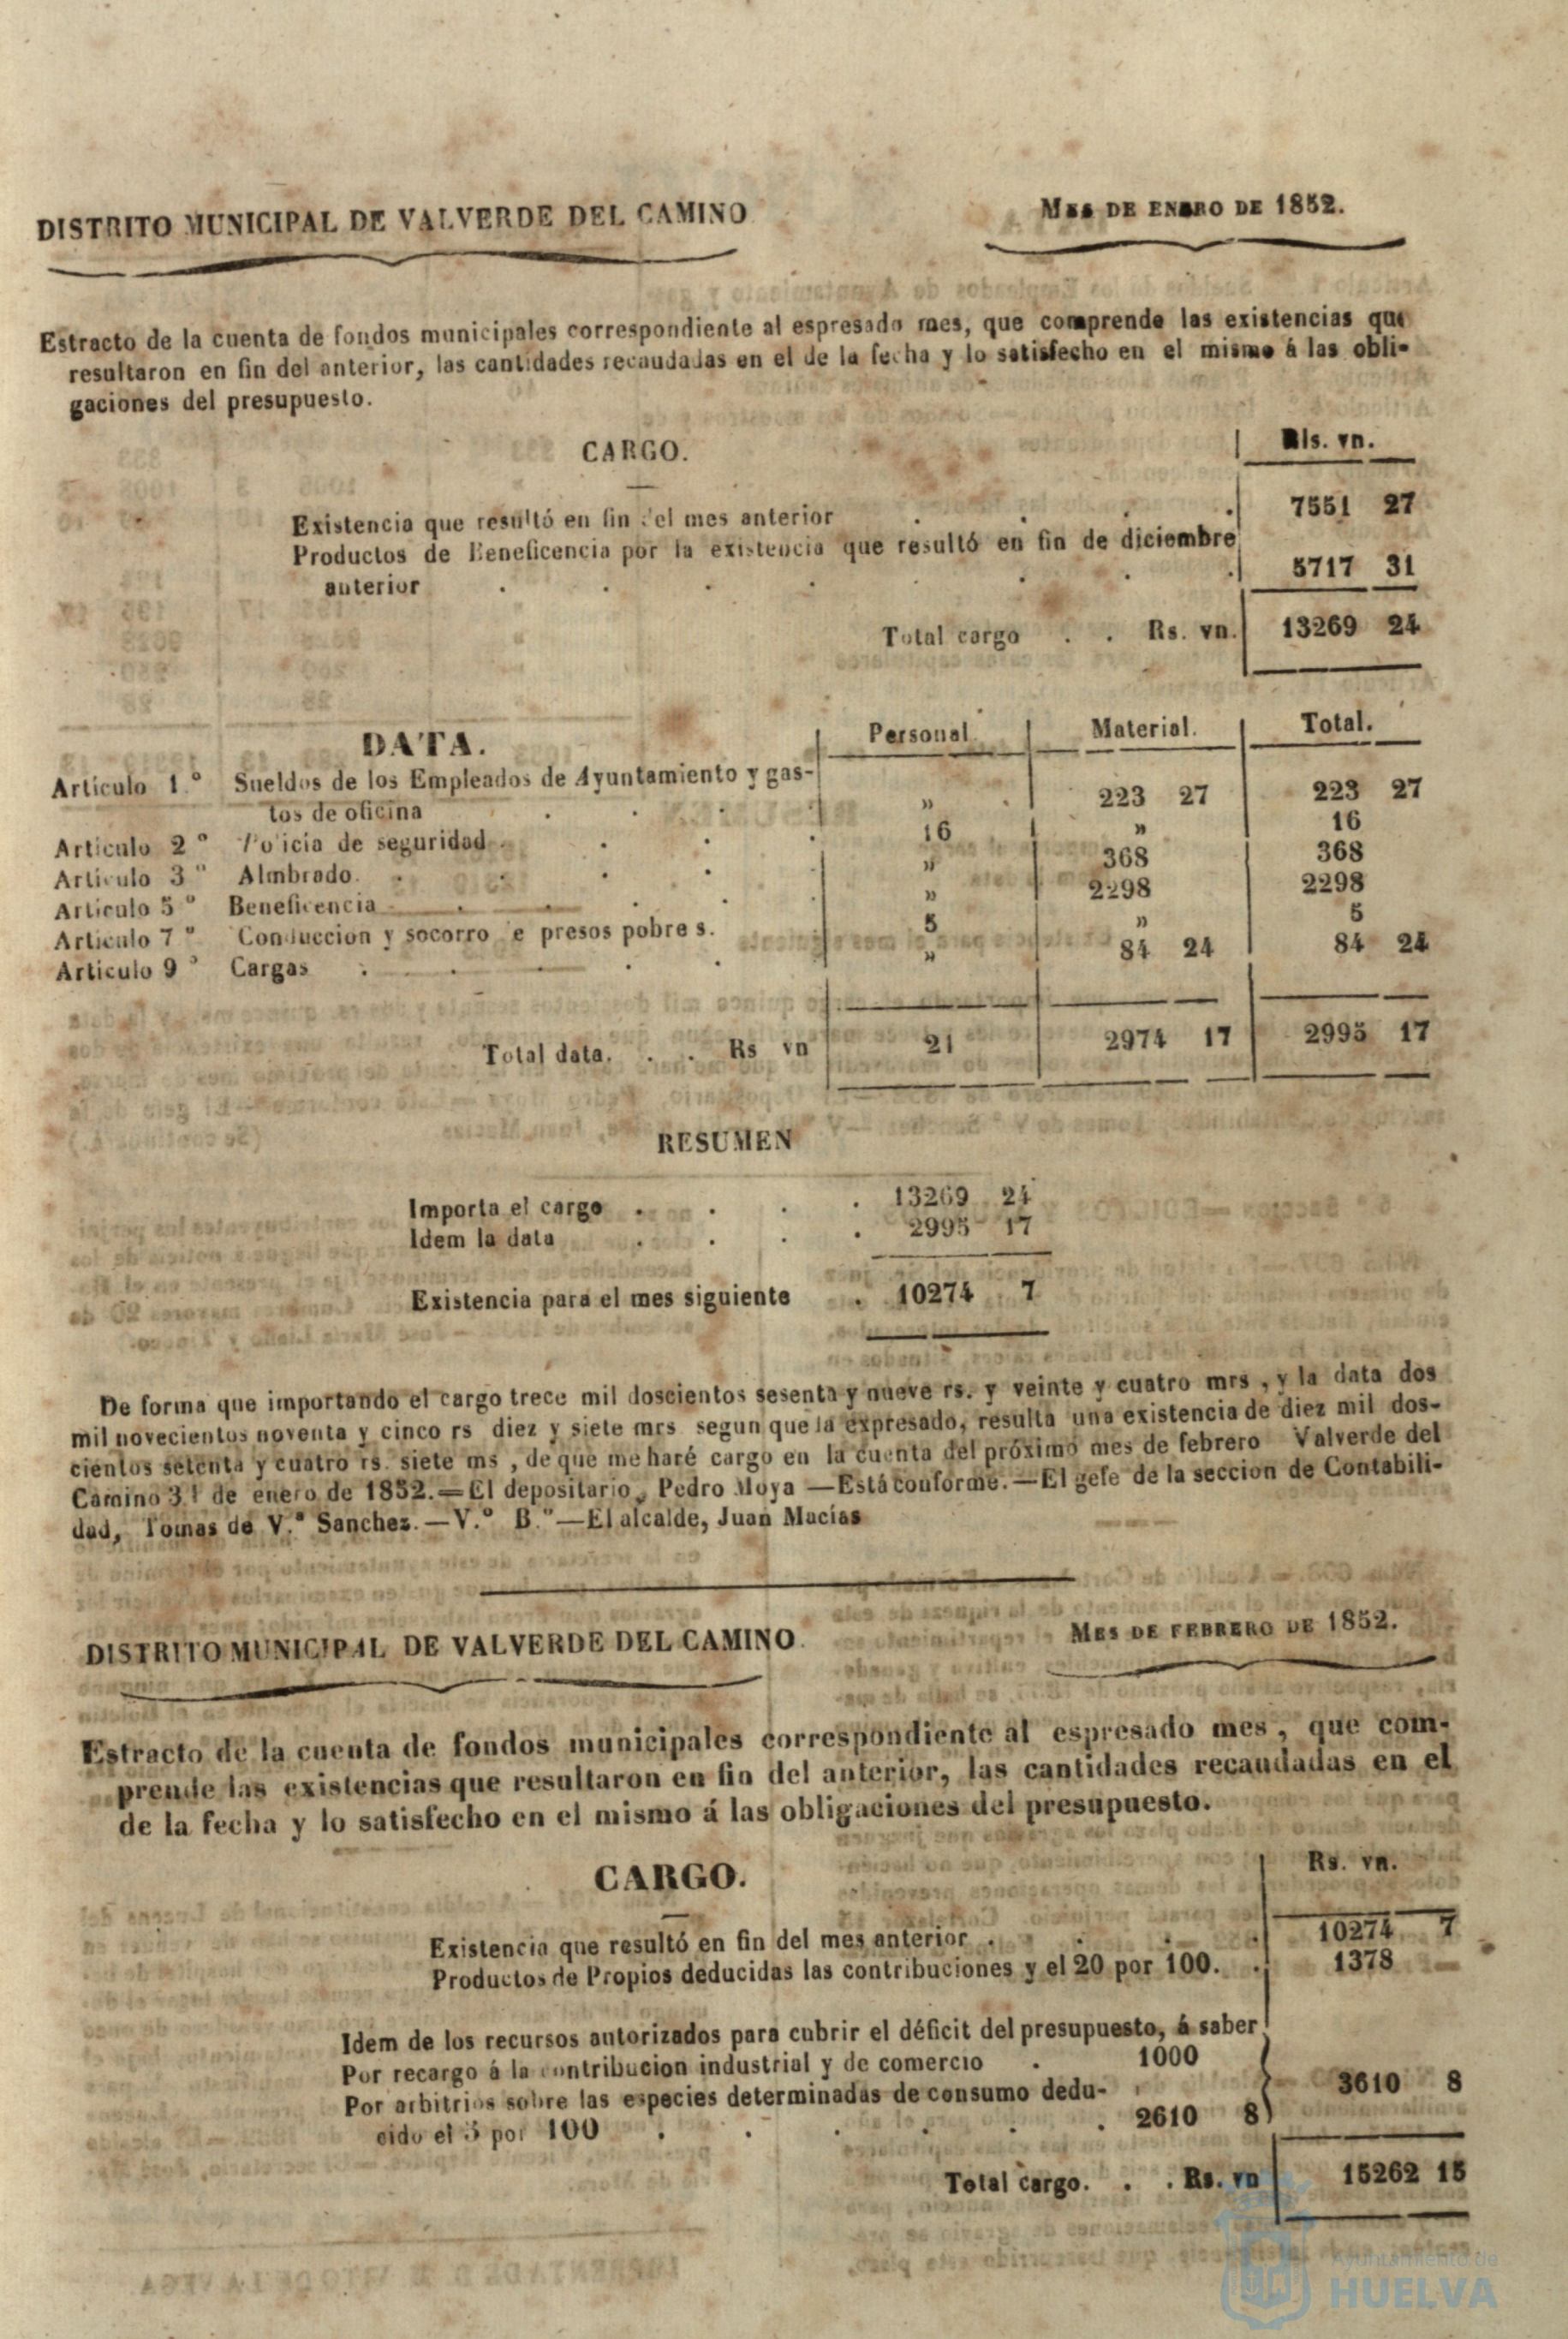 DISTRITO MUNICIPAL DE VALVERDE DEL CAMINO
MES DE ENERO DE 1852.
Estracto de la cuenta de fondos municipales correspondiente al espresado mes, que comprende las existencias que
resultaron en fin del anterior, las cantidades recaudadas en el de la fecha y lo satisfecho en el mismo á las obli-
gaciones del presupuesto.
CARGO.
Rls. vn.
Existencia que resultó en fin del mes anterior . . . . 7551 27
Productos de Beneficencia por la existencia que resultó en fin de diciembre
anterior . . . . . . . . 5717 31
Total cargo . . Rs. vn. 13269 24
DATA. Personal Material. Total.
Artículo 1.º Sueldos de los Empleados de Ayuntamiento y gas-
tos de oficina . . . » 223 27 223 27
Artículo 2º Policia de seguridad . . . . 16 » 16
Artículo 3º Almbrado. . . . . » 368 368
Artículo 5º Beneficencia . . . . » 2298 2298
Artículo 7º Conduccion y socorro e presos pobres. 5 » 5
Artículo 9º Cargas . . . . . » 84 24 84 24
Total data. . . Rs vn 21 2974 17 2995 17
RESUMEN
Importa el cargo . . . . 13269 24
Idem la data . . . . 2995 17
Existencia para el mes siguiente . 10274 7
De forma que importando el cargo trece mil doscientos sesenta y nueve rs. y veinte y cuatro mrs , y la data dos
mil novecientos noventa y cinco rs diez y siete mrs segun que la expresado, resulta una existencia de diez mil dos-
cientos setenta y cuatro rs. siete ms , de que me haré cargo en la cuenta del próximo mes de febrero Valverde del
Camino 31 de enero de 1852.=El depositario, Pedro Moya —Está conforme.—El gefe de la seccion de Contabili-
dad, Tomas de V.ª Sanchez.—V.º B.º—El alcalde, Juan Macías
DISTRITO MUNICIPAL DE VALVERDE DEL CAMINO.
MES DE FEBRERO DE 1852.
Estracto de la cuenta de fondos municipales correspondiente al espresado mes, que com-
prende las existencias que resultaron en fin del anterior, las cantidades recaudadas en el
de la fecha y lo satisfecho en el mismo á las obligaciones del presupuesto.
CARGO.
Rs. vn.
Existencia que resultó en fin del mes anterior . . . . 10274 7
Productos de Propios deducidas las contribuciones y el 20 por 100. . 1378 —
Idem de los recursos autorizados para cubrir el déficit del presupuesto, á saber
Por recargo á la contribucion industrial y de comercio . 1000
Por arbitrios sobre las especies determinadas de consumo dedu- 3610 8
cido el 5 por 100 . . . . . . 2610 8
Total cargo. . . Rs. vn 15262 15
Ayuntamiento de
HUELVA